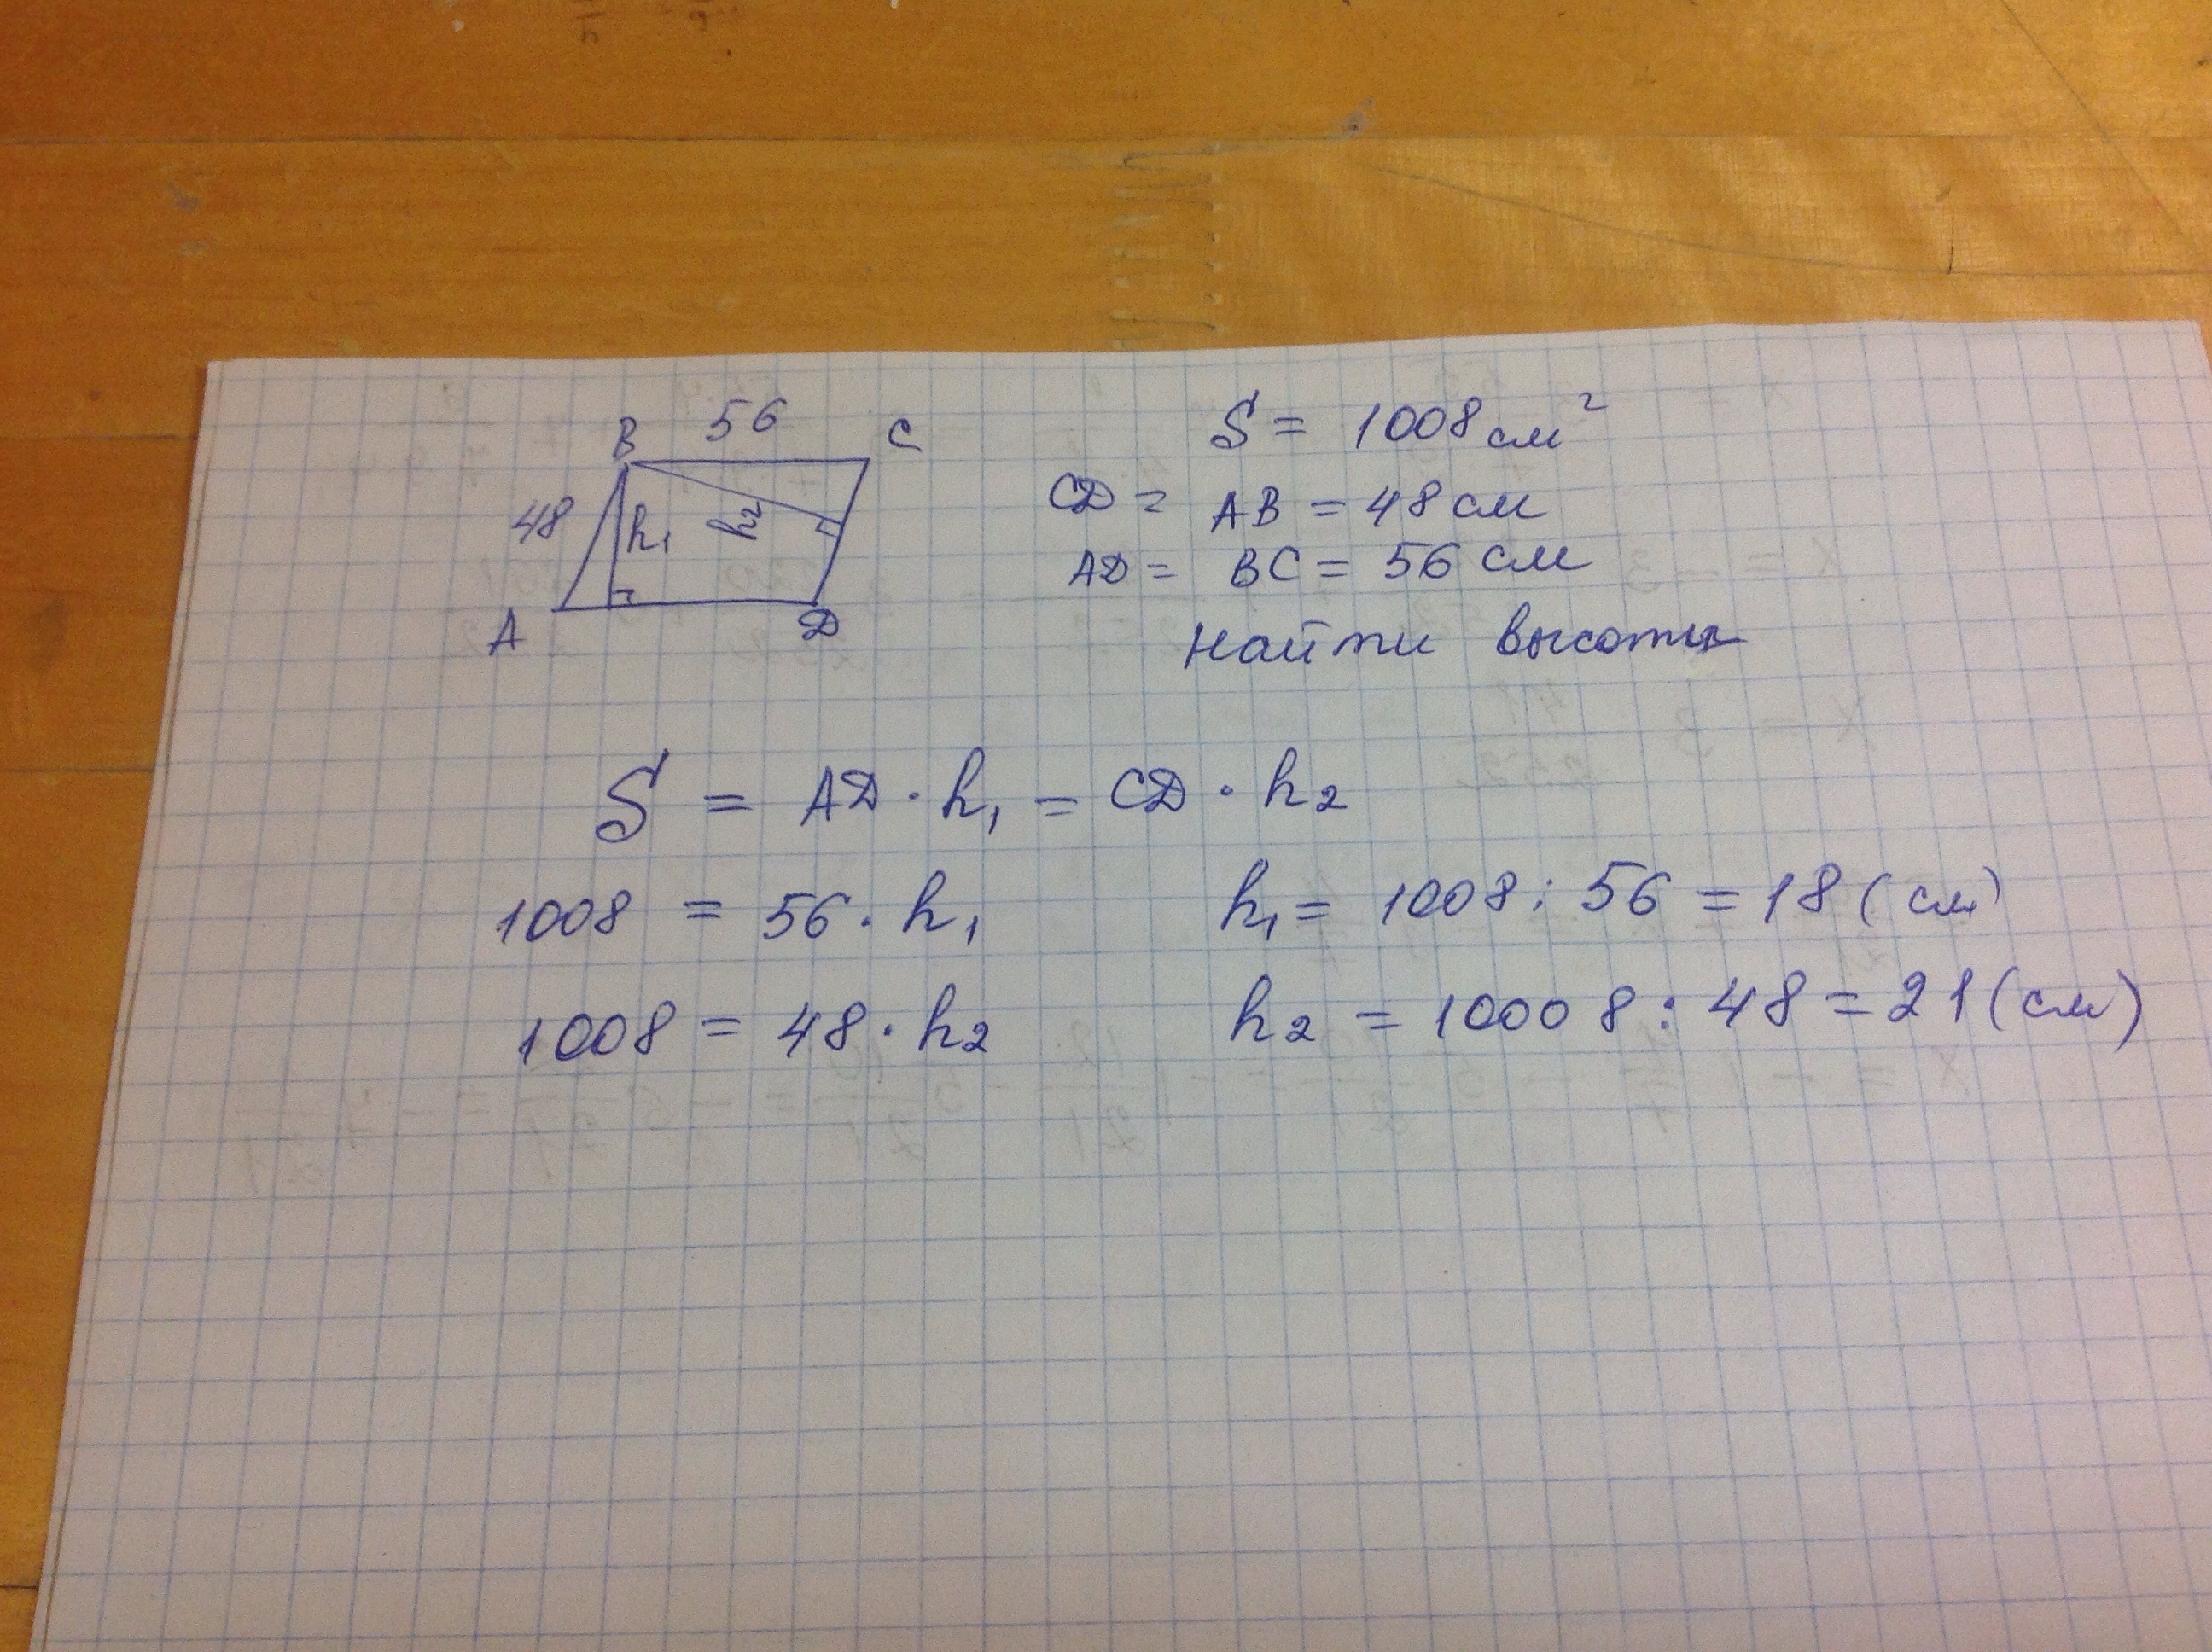 B 56 C
48 h₁ h₂
A D
S = 1008 см²
CD = AB = 48 см
AD = BC = 56 см
Найти высоты
S = AD · h₁ = CD · h₂
1008 = 56 · h₁ h₁ = 1008 : 56 = 18 (см)
1008 = 48 · h₂ h₂ = 10008 : 48 = 21 (см)